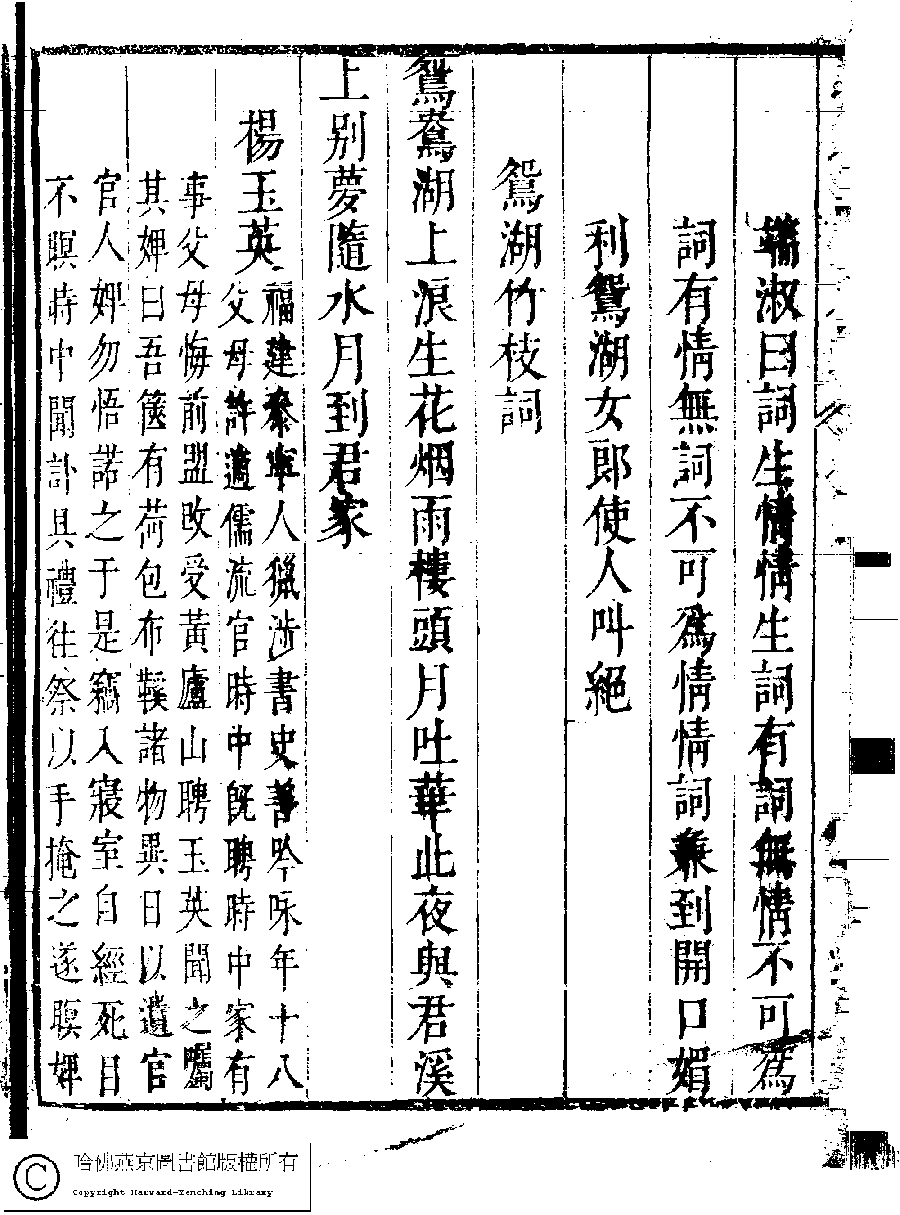 蘄淑曰詞生情情生詞有詞無情不可為
詞有情無詞不可為情情詞兼到開口媚
利鴛湖女郎使人叫絕
鴛湖竹枝詞
鴛鴦湖上浪生花烟雨樓頭月吐華此夜與君溪
上别夢隨水月到君家
楊玉英
福建泰寧人獵涉書史善吟咏年十八
父母許適儒流官時中旣聘時中家有
事父母悔前盟改受黃廬山聘玉英聞之囑
其婢曰吾篋有荷包布鞵諸物異日以遺官
官人婢勿悟諾之于是竊入寢室自經死目
不瞑時中聞訃具禮往祭以手掩之遂瞑婢
哈佛燕京圖書館版權所有
Copyright Harvard-Yenching Library